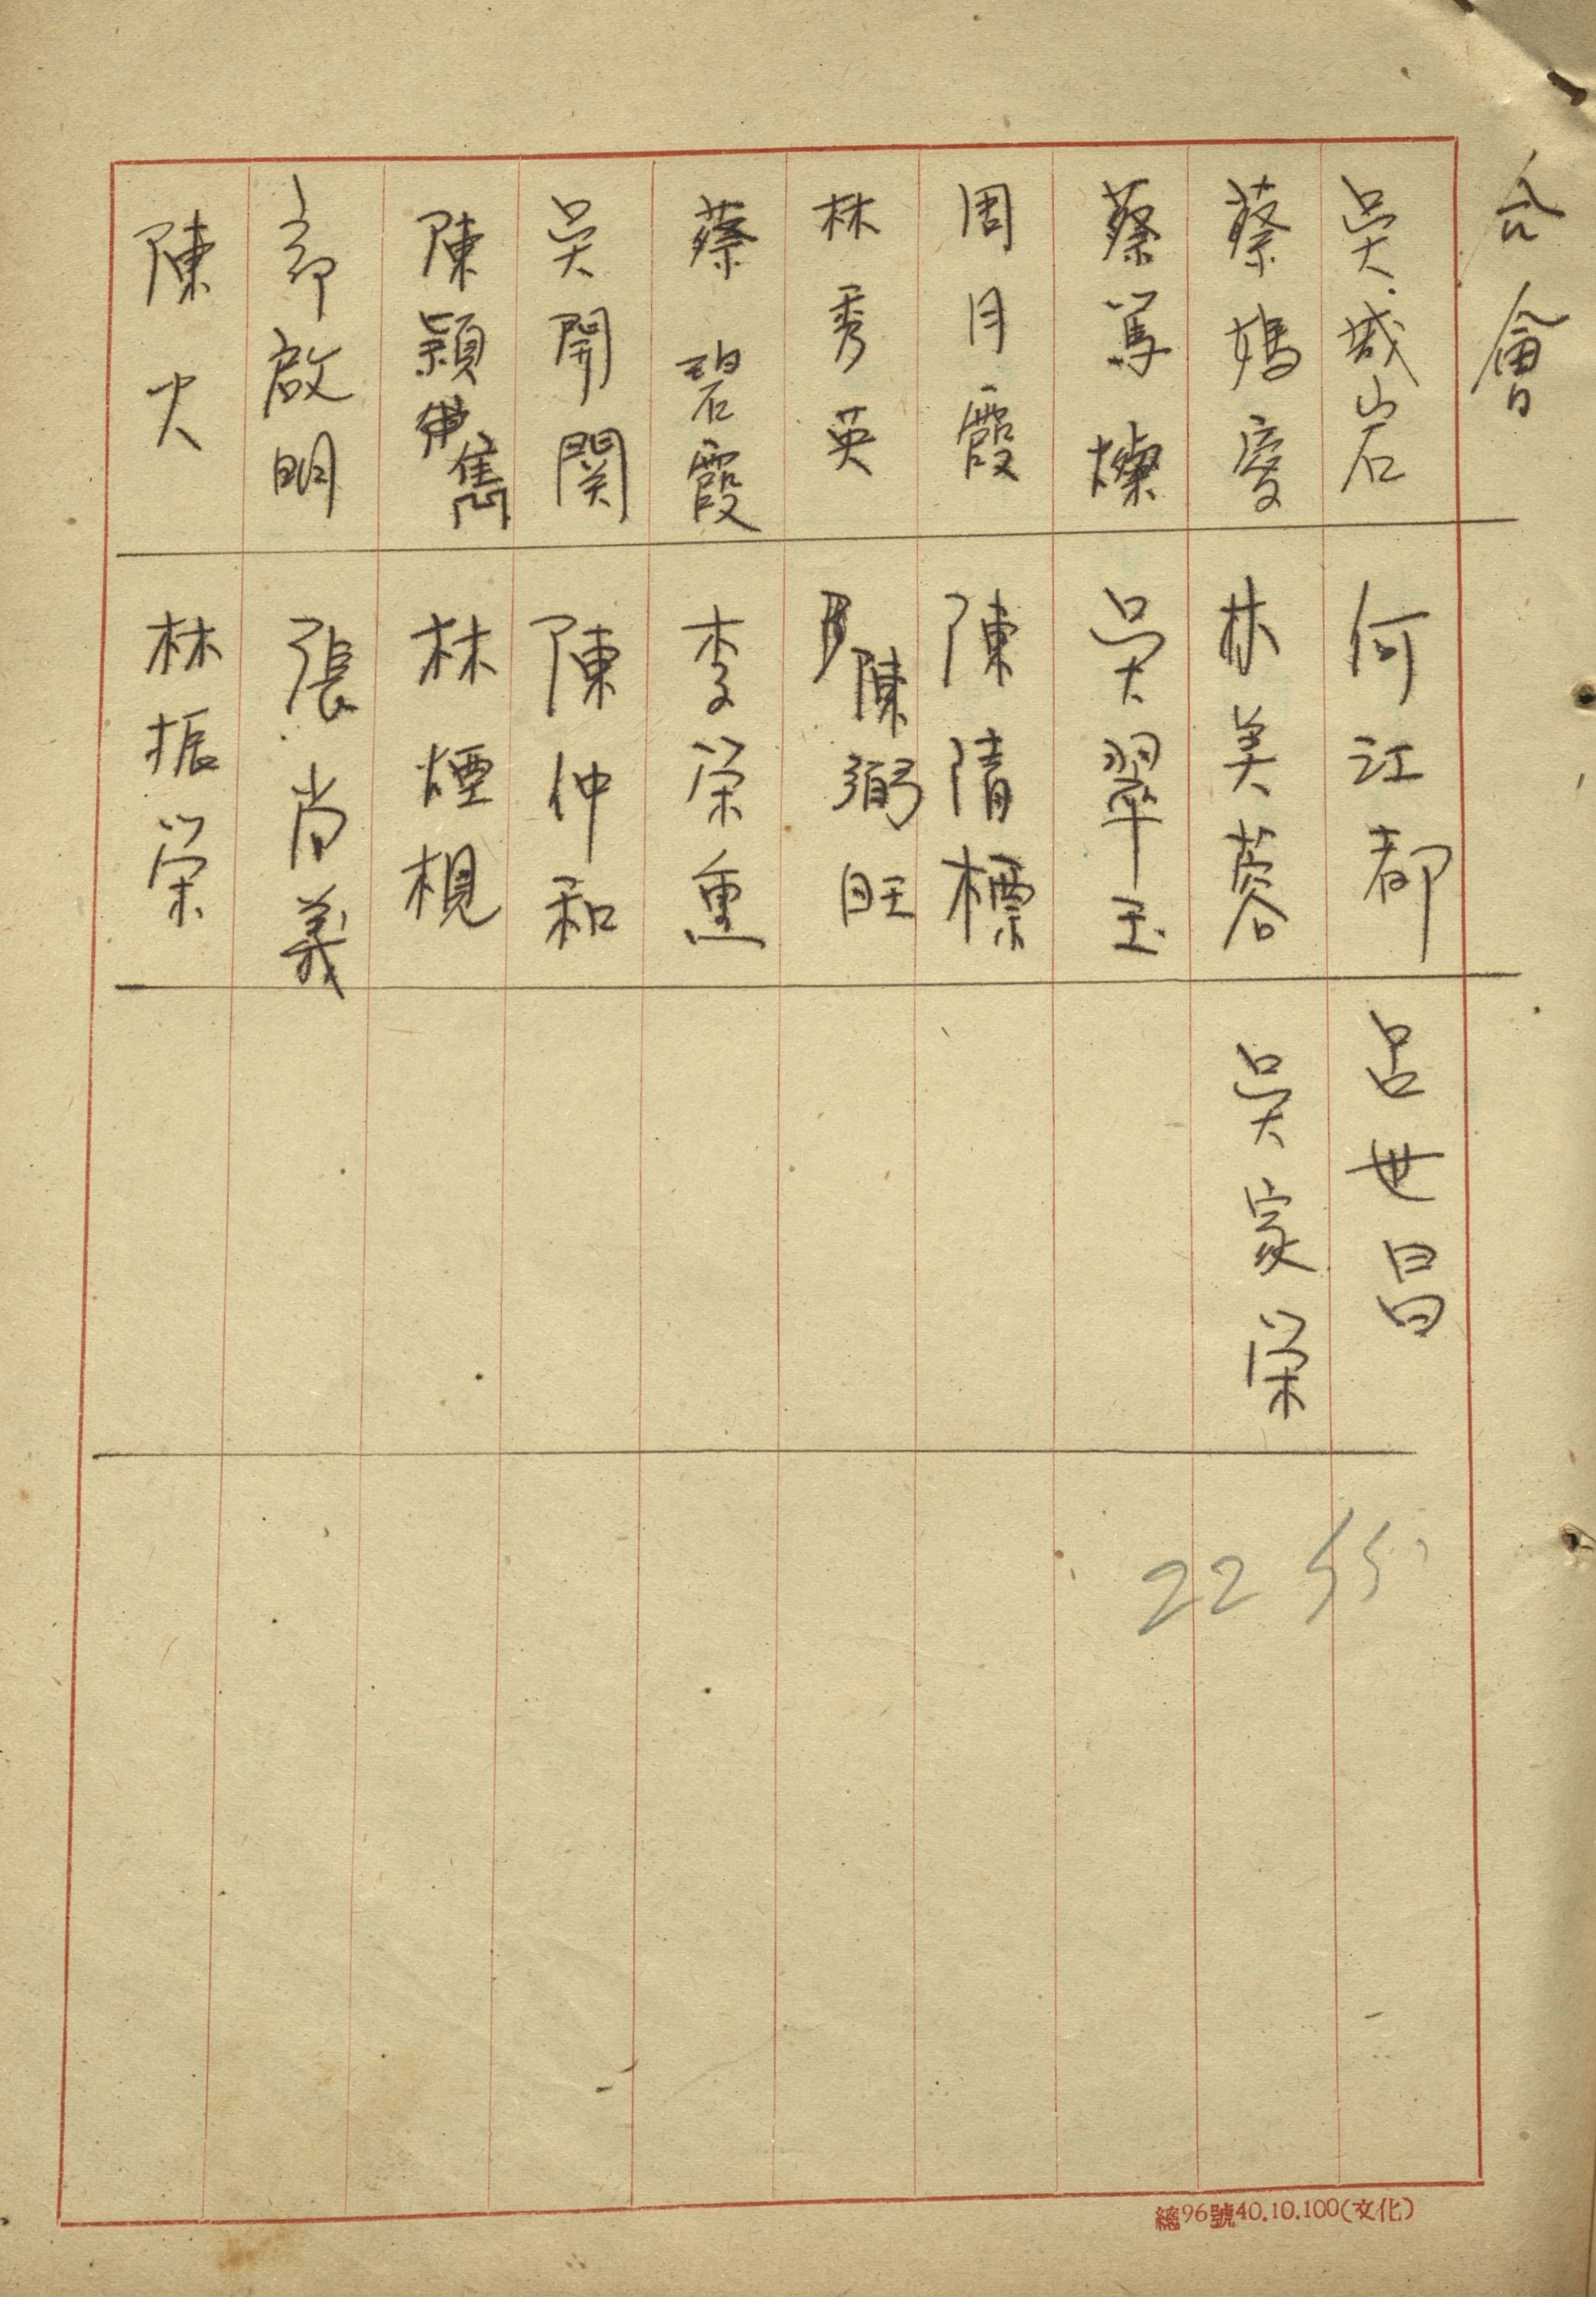 合會
吳城岩
蔡媽慶
蔡篤燦
周月霞
林秀英
蔡碧霞
吳開関
陳穎雋
啟明
陳火
何江都
林美蓉
吳翠玉
陳清標
陳弼旺
李荣重
陳仲和
林煙梘
張尚義
林振荣
呂世昌
吳家荣
22
總96號40.10.100(文化)